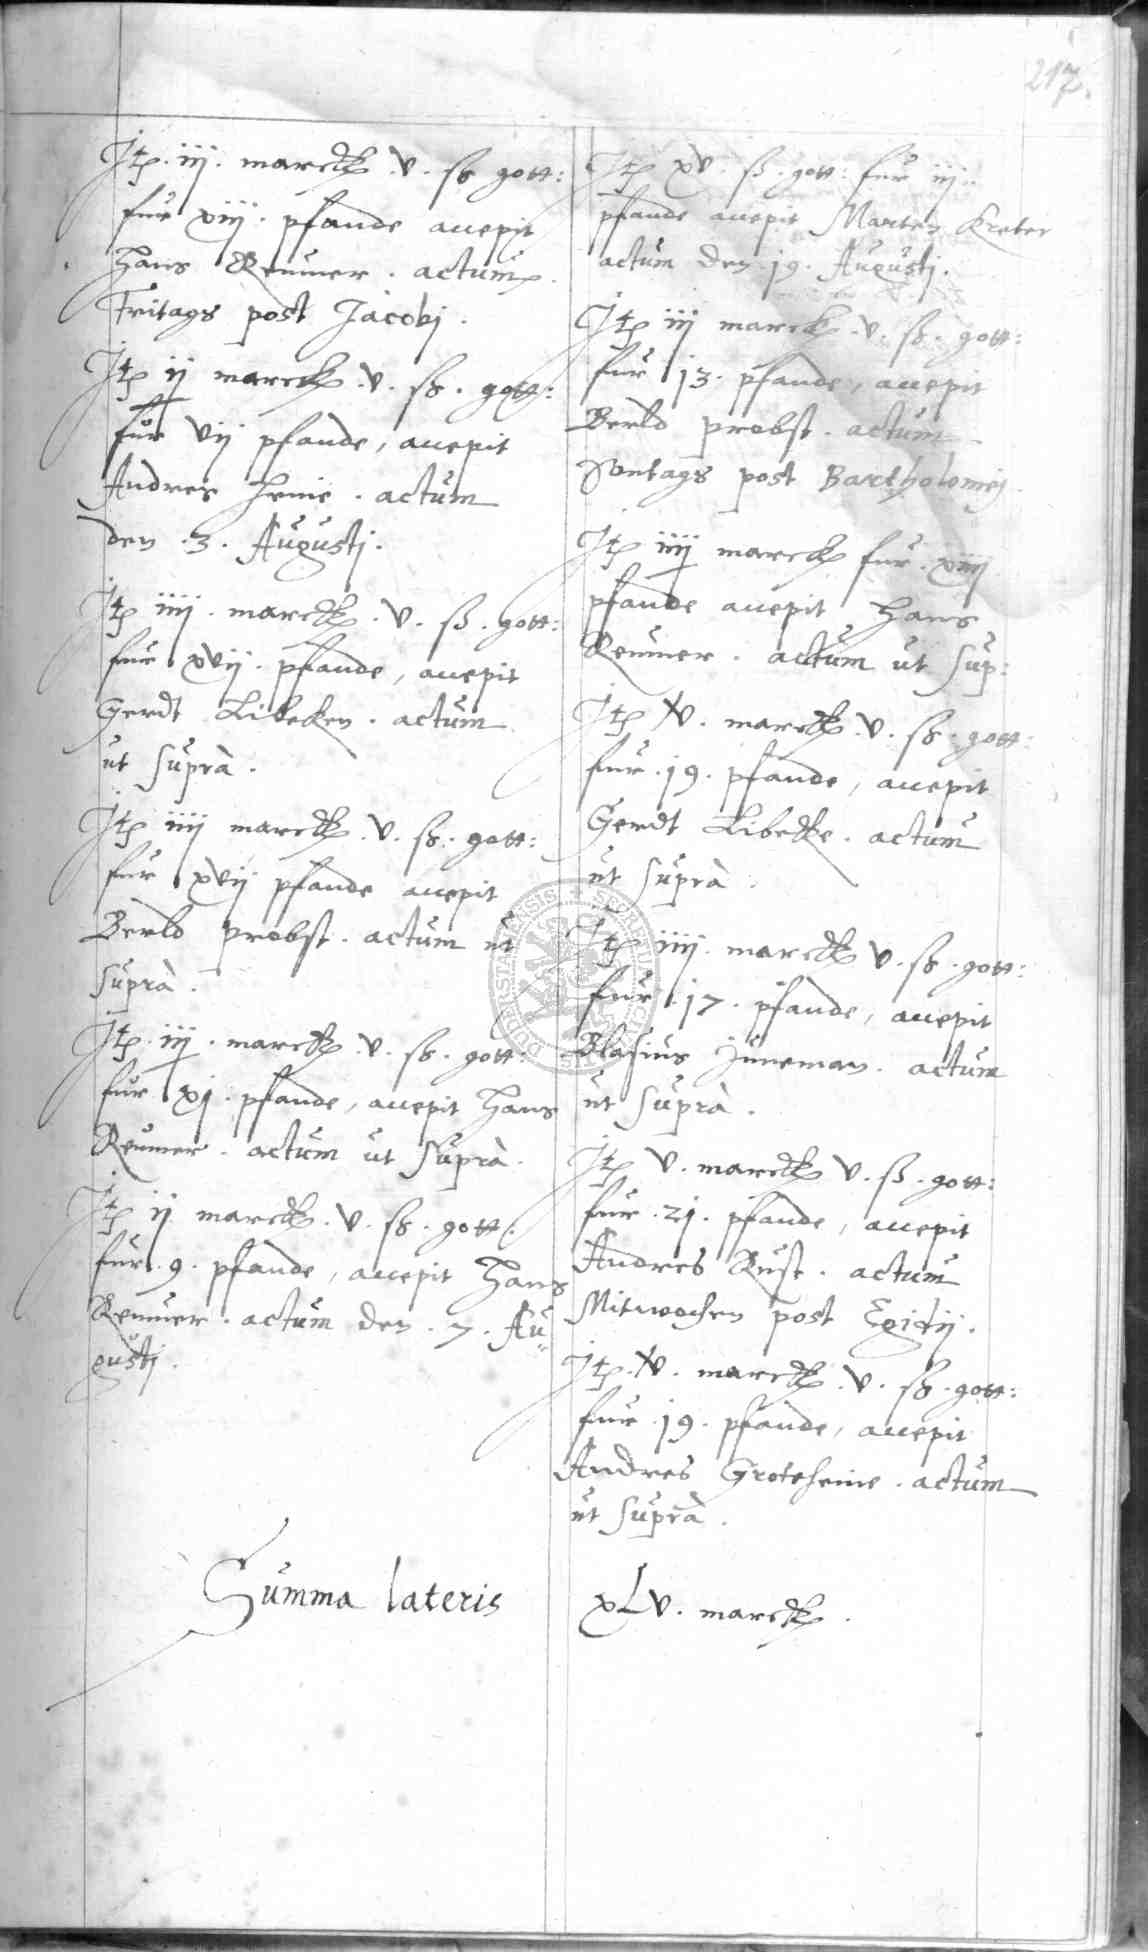 217.
Itp. iij. marck v. ß gott:
fur xiij. pfande accepit
Hans Reumer. actum
Fritags post Jacobj.
Itp ij marck v. ß. gott:
fur vij pfande, accepit
Andres Heine. actum
den .3. Augustj.
Itp iiij. marck. v. ß. gott:
fur xvij. pfande, accepit
Gerdt Libecken. actum
ut suprà.
Itp iiij marck. v. ß. gott:
fur xvij pfande accepit
Berld probst. actum ut
suprà.
Itp. iij. marck. v. ß. gott:
fur xj. pfande, accepit Hans
Reumer. actum ut suprà.
Itp ij marck. v. ß. gott:
fur .9. pfande, accepit Hans
Reumer. actum den .7. Au„
gustj.
Itp xv. ß. gott: fur iij..
pfande accepit Marten Kreter
actum den .19. Augustj.
Itp iij marck. v. ß. gott:
fur 13. pfande, accepit
Berld probst. actum
Sontags post Bartholomej.
Itp iiij marck fur. xiiij
pfande accepit Hans
Reumer. actum ut sup:
Itp iv. marck. v. ß. gott:
fur .19. pfande, accepit
Gerdt Libecke. actum
ut suprà.
Itp iiij. marck v. ß. gott:
fur .17. pfande, accepit
Blasius Juneman. actum
ut suprà.
Itp v. marck v. ß. gott:
fur .21. pfande, accepit
Andres Rust. actum
Mitwochen post Egidij.
Itp. iv. marck. v. ß. gott:
fur .19. pfande, accepit
Andres Groteheine. actum
ut suprà.
Summa lateris xLv. marck.